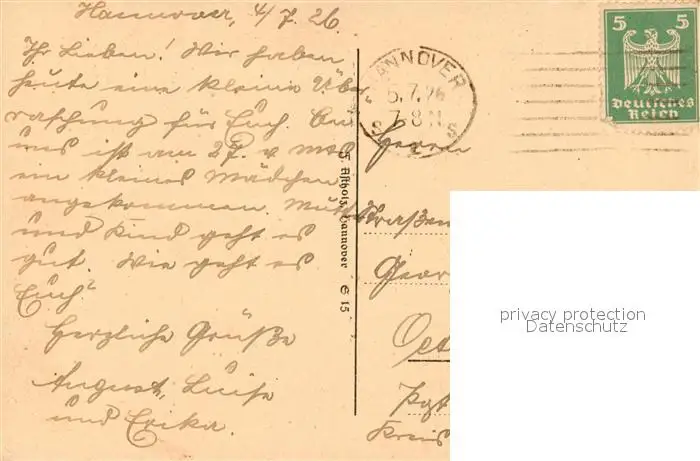 Hannover, 4/7. 26
Ihr Lieben! Wir haben
heute eine kleine Über-
raschung für Euch. Bei
uns ist am 27. v. Mts
ein kleines Mädchen
angekommen. Mutter
und Kind geht es
gut. Wie geht es
Euch?
Herzliche Grüße
August, Luise
und Erika.
F. Astholz, Hannover E 15
HANNOVER
5.7.26
7-8 N
S S
5 5
Deutsches
Reich
Herrn
Straßen
Georg
Kreis
privacy protection
Datenschutz